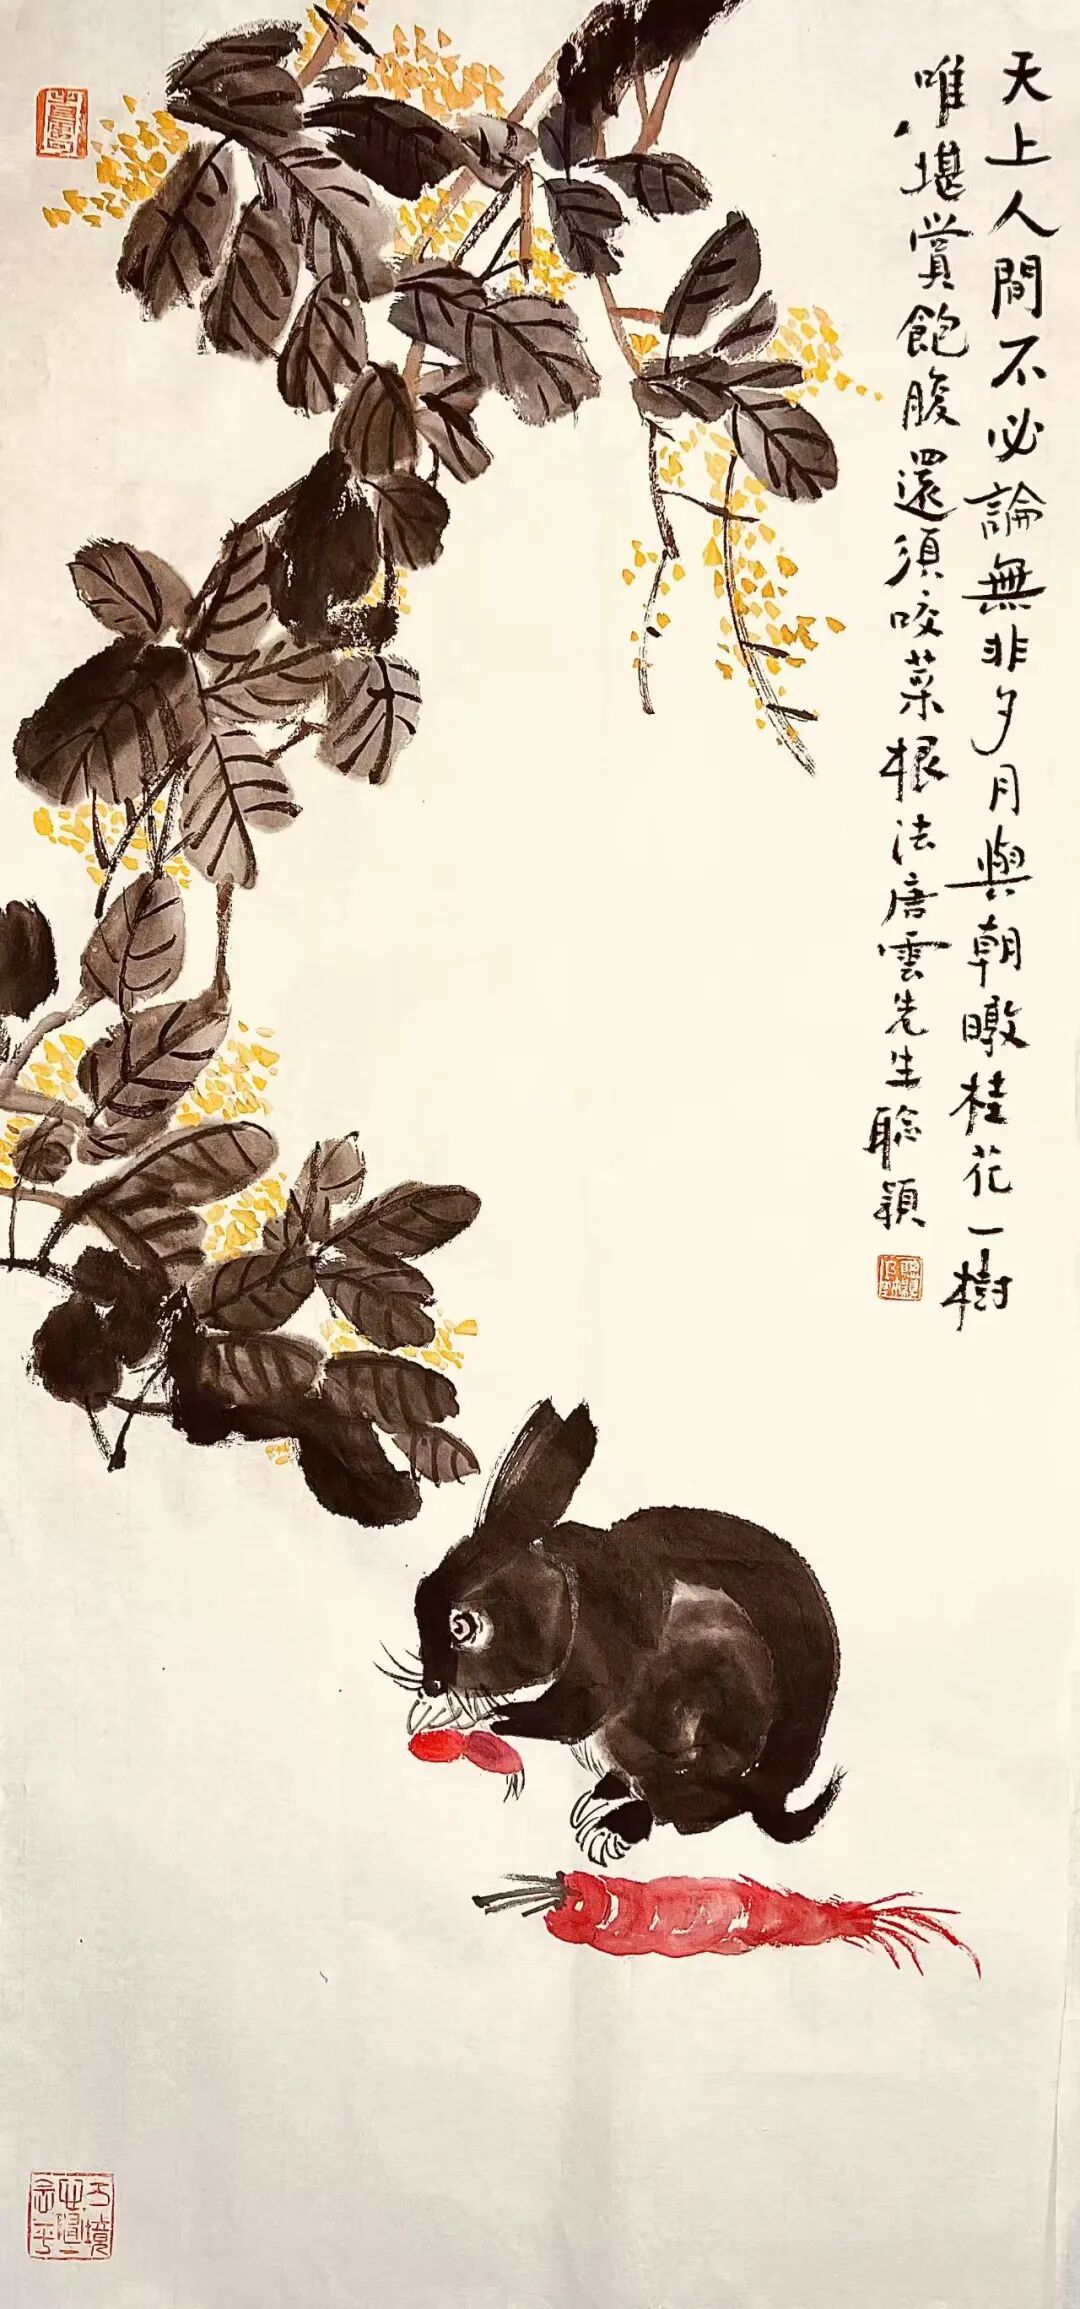 天上人間不必論無非夕月與朝暾桂花一樹
唯堪賞飽腹還須咬菜根法唐雲先生聪穎